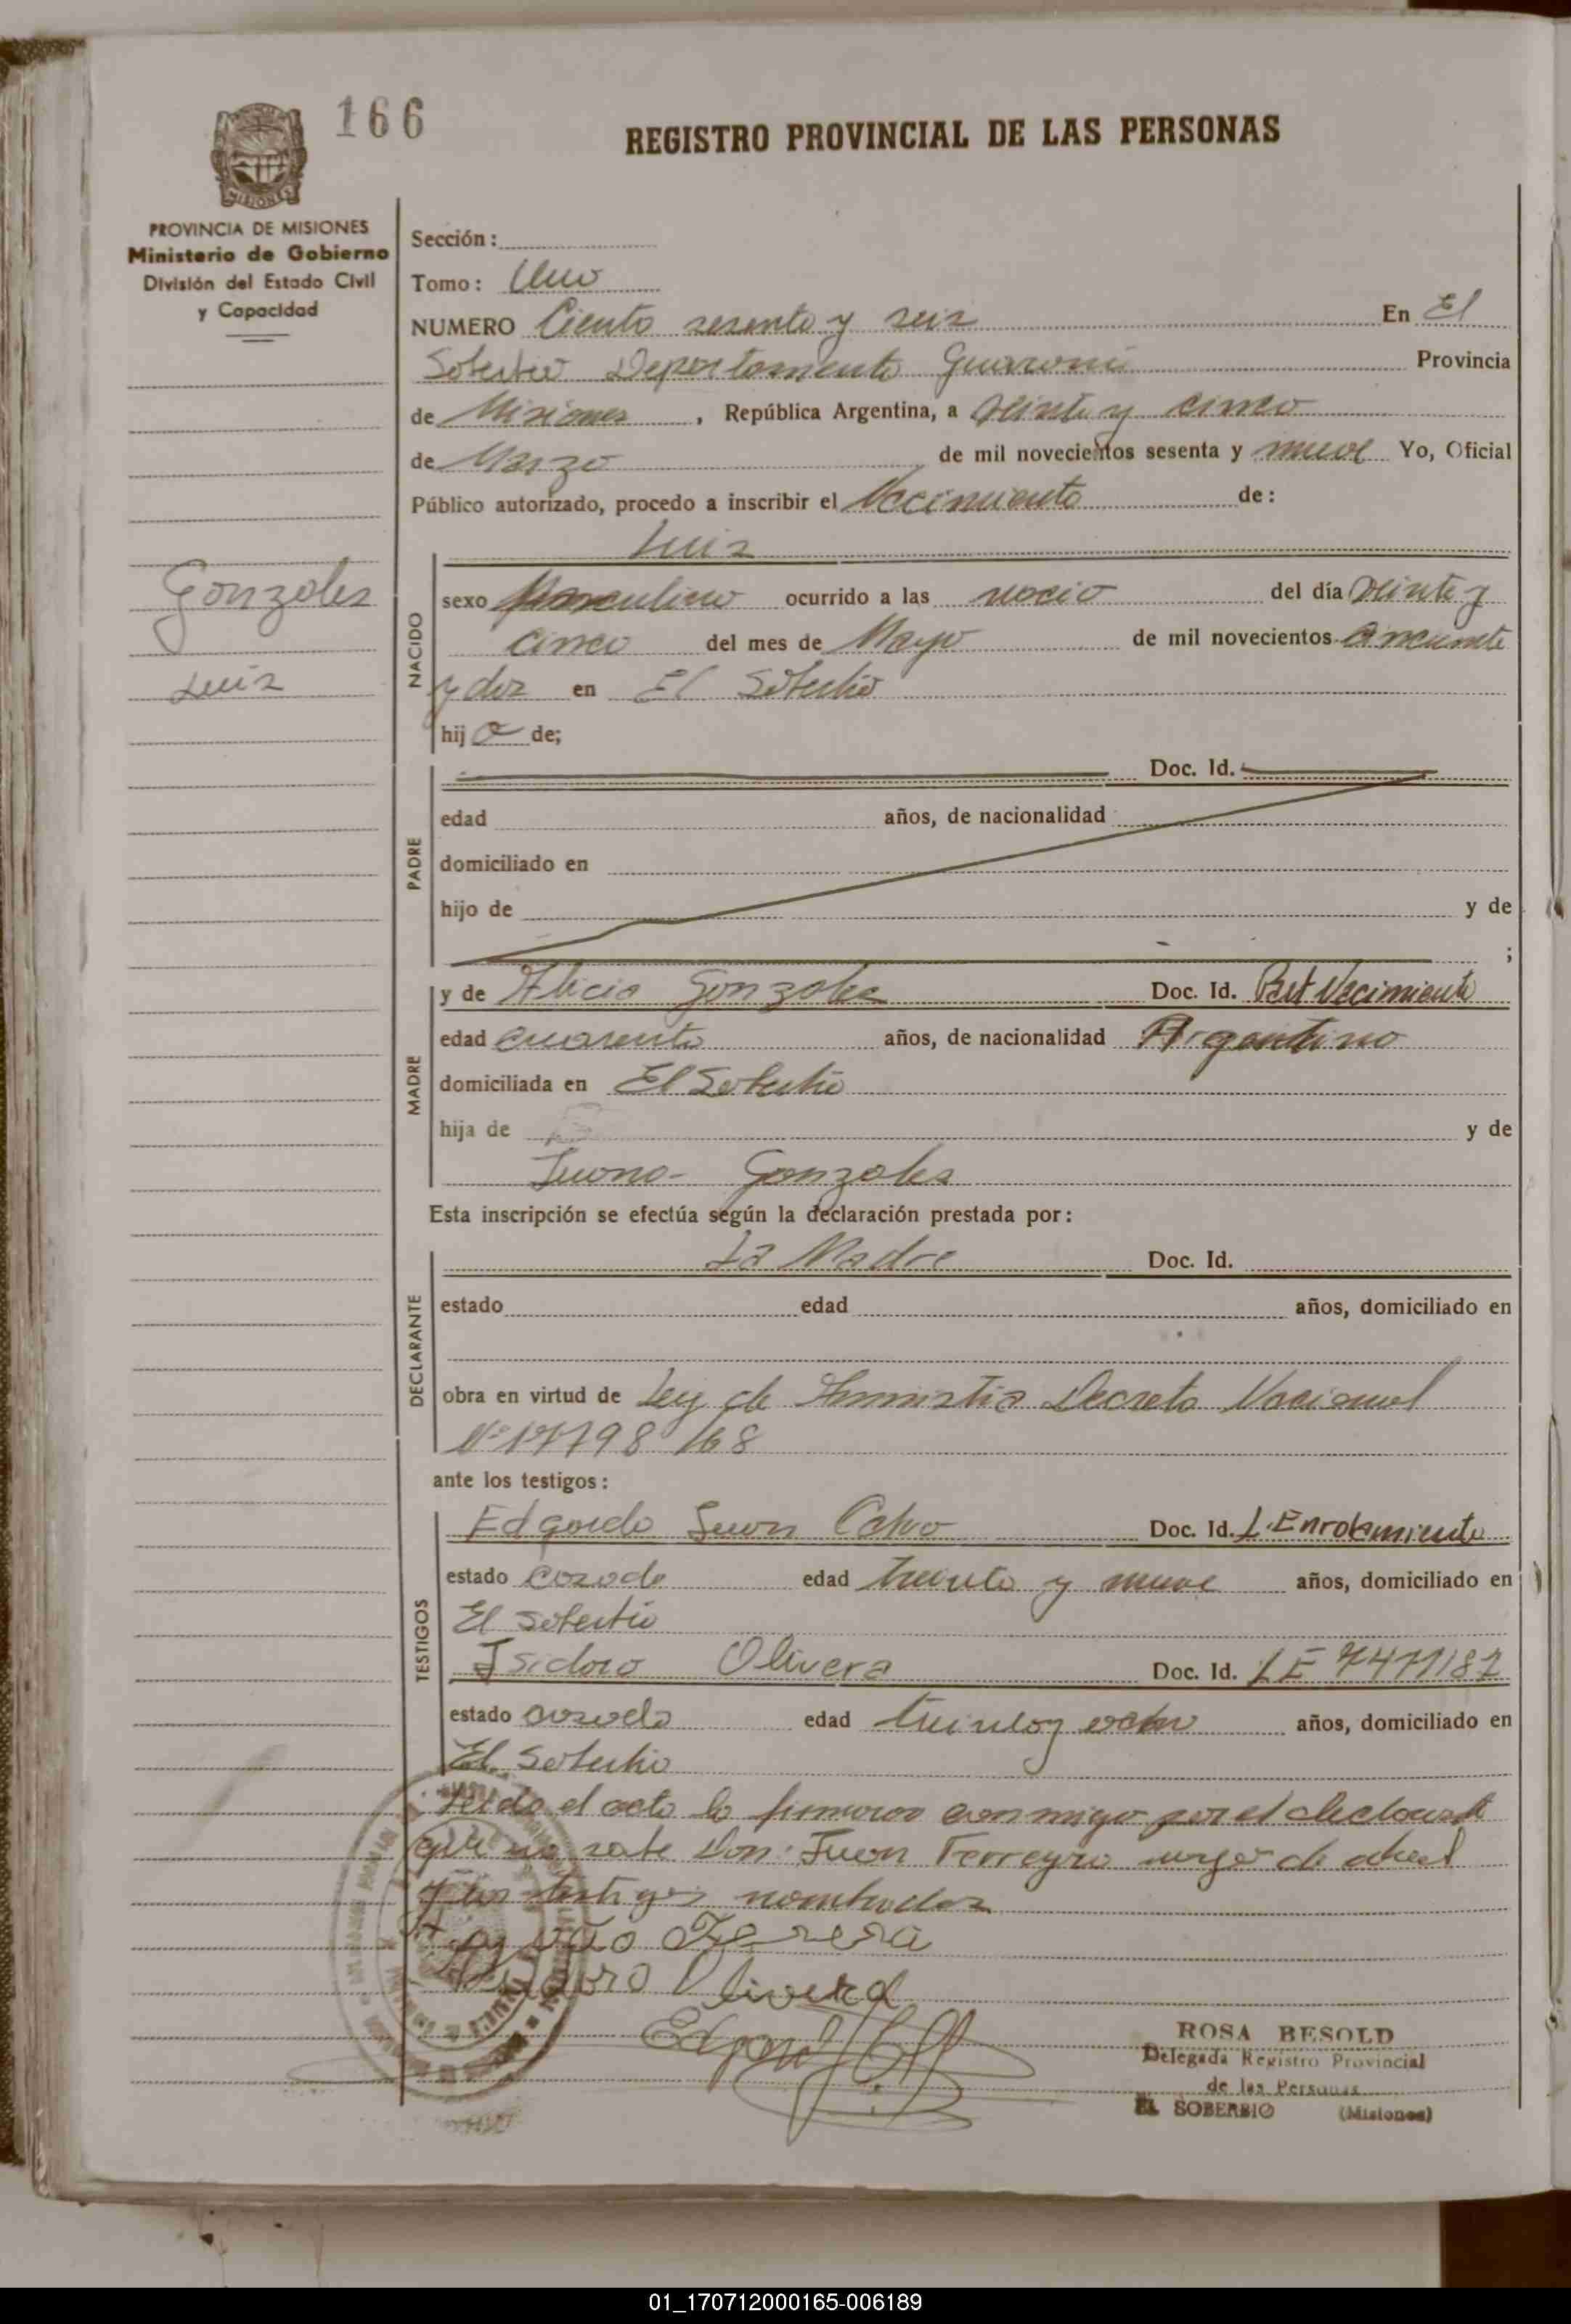 166
REGISTRO PROVINCIAL DE LAS PERSONAS
MISIONES
PROVINCIA DE MISIONES
Ministerio de Gobierno
División del Estado Civil
y Capacidad
Gonzales
Luis
Sección:
Tomo: Uno
NUMERO Ciento sesenta y seis En El
Soberbio Departamento Guarani Provincia
de Misiones, República Argentina, a veinte y cinco
de Marzo de mil novecientos sesenta y nueve Yo, Oficial
Público autorizado, procedo a inscribir el Nacimiento de:
Luis
NACIDO
sexo Masculino ocurrido a las del día veinte y
cinco del mes de Mayo de mil novecientos cincuenta
y dos en El Soberbio
hijo de;
PADRE
Doc. Id.
edad años, de nacionalidad
domiciliado en
hijo de y de
;
MADRE
y de Alicia Gonzales Doc. Id. Part Nacimiento
edad cuarenta años, de nacionalidad Argentino
domiciliada en El Soberbio
hija de y de
Juana Gonzales
Esta inscripción se efectúa según la declaración prestada por:
DECLARANTE
La Madre Doc. Id.
estado edad años, domiciliado en
obra en virtud de Ley de Amnistia Decreto Nacional
Nº 17798/68
ante los testigos:
TESTIGOS
Edgardo Juan Calvo Doc. Id. L. Enrolamiento
estado casado edad treinta y nueve años, domiciliado en
El Soberbio
Isidoro Olivera Doc. Id. LE 7471182
estado casado edad treinta y ocho años, domiciliado en
El Soberbio
Leida el acta la firmaron conmigo por el declarante
que no sabe Don: Juan Ferreyra mayor de edad
y los testigos nombrados
Olivera
ROSA BESOLD
Delegada Registro Provincial
de las Personas
EL SOBERBIO (Misiones)
01_170712000165-006189